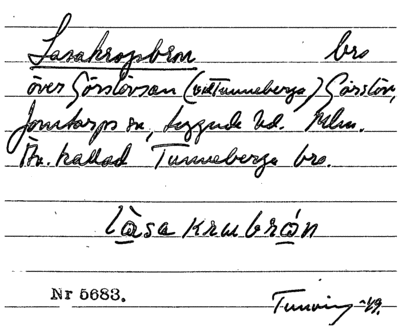 Lasakropbron bro
över Görslövsån (vid Tunneberga) Görslöv,
Jonstorps sn, Luggude hd. Mlm.
Äv. kallad Tunneberga bro.
låsa krubrón
Nr 5683.
-49.